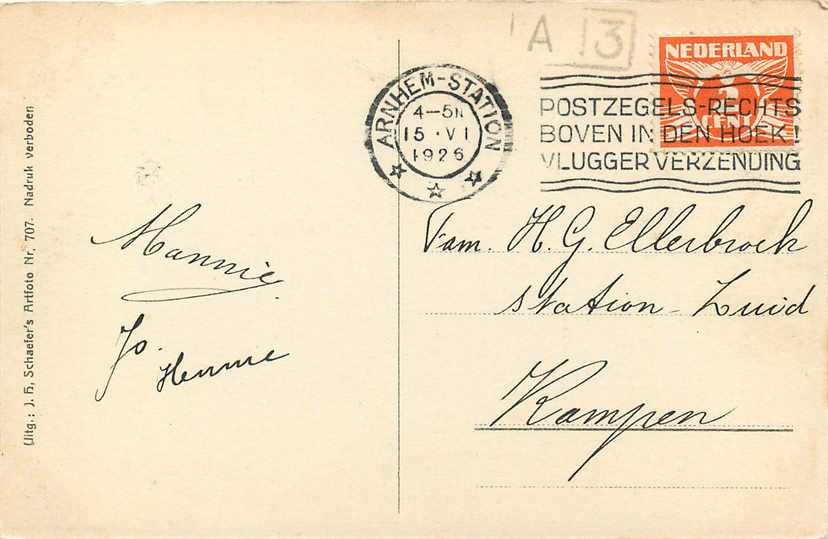 A 3
NEDERLAND
CENT
ARNHEM-STATION
4-5N
15 · VI
1926
POSTZEGELS-RECHTS
BOVEN IN DEN HOEK!
VLUGGER VERZENDING
Mannie.
Jo.
Hennie
Fam. H. G. Ellerbroek
Station-Zuid
Kampen
Uitg.: J. H. Schaefer's Artfoto Nr. 707. Nadruk verboden